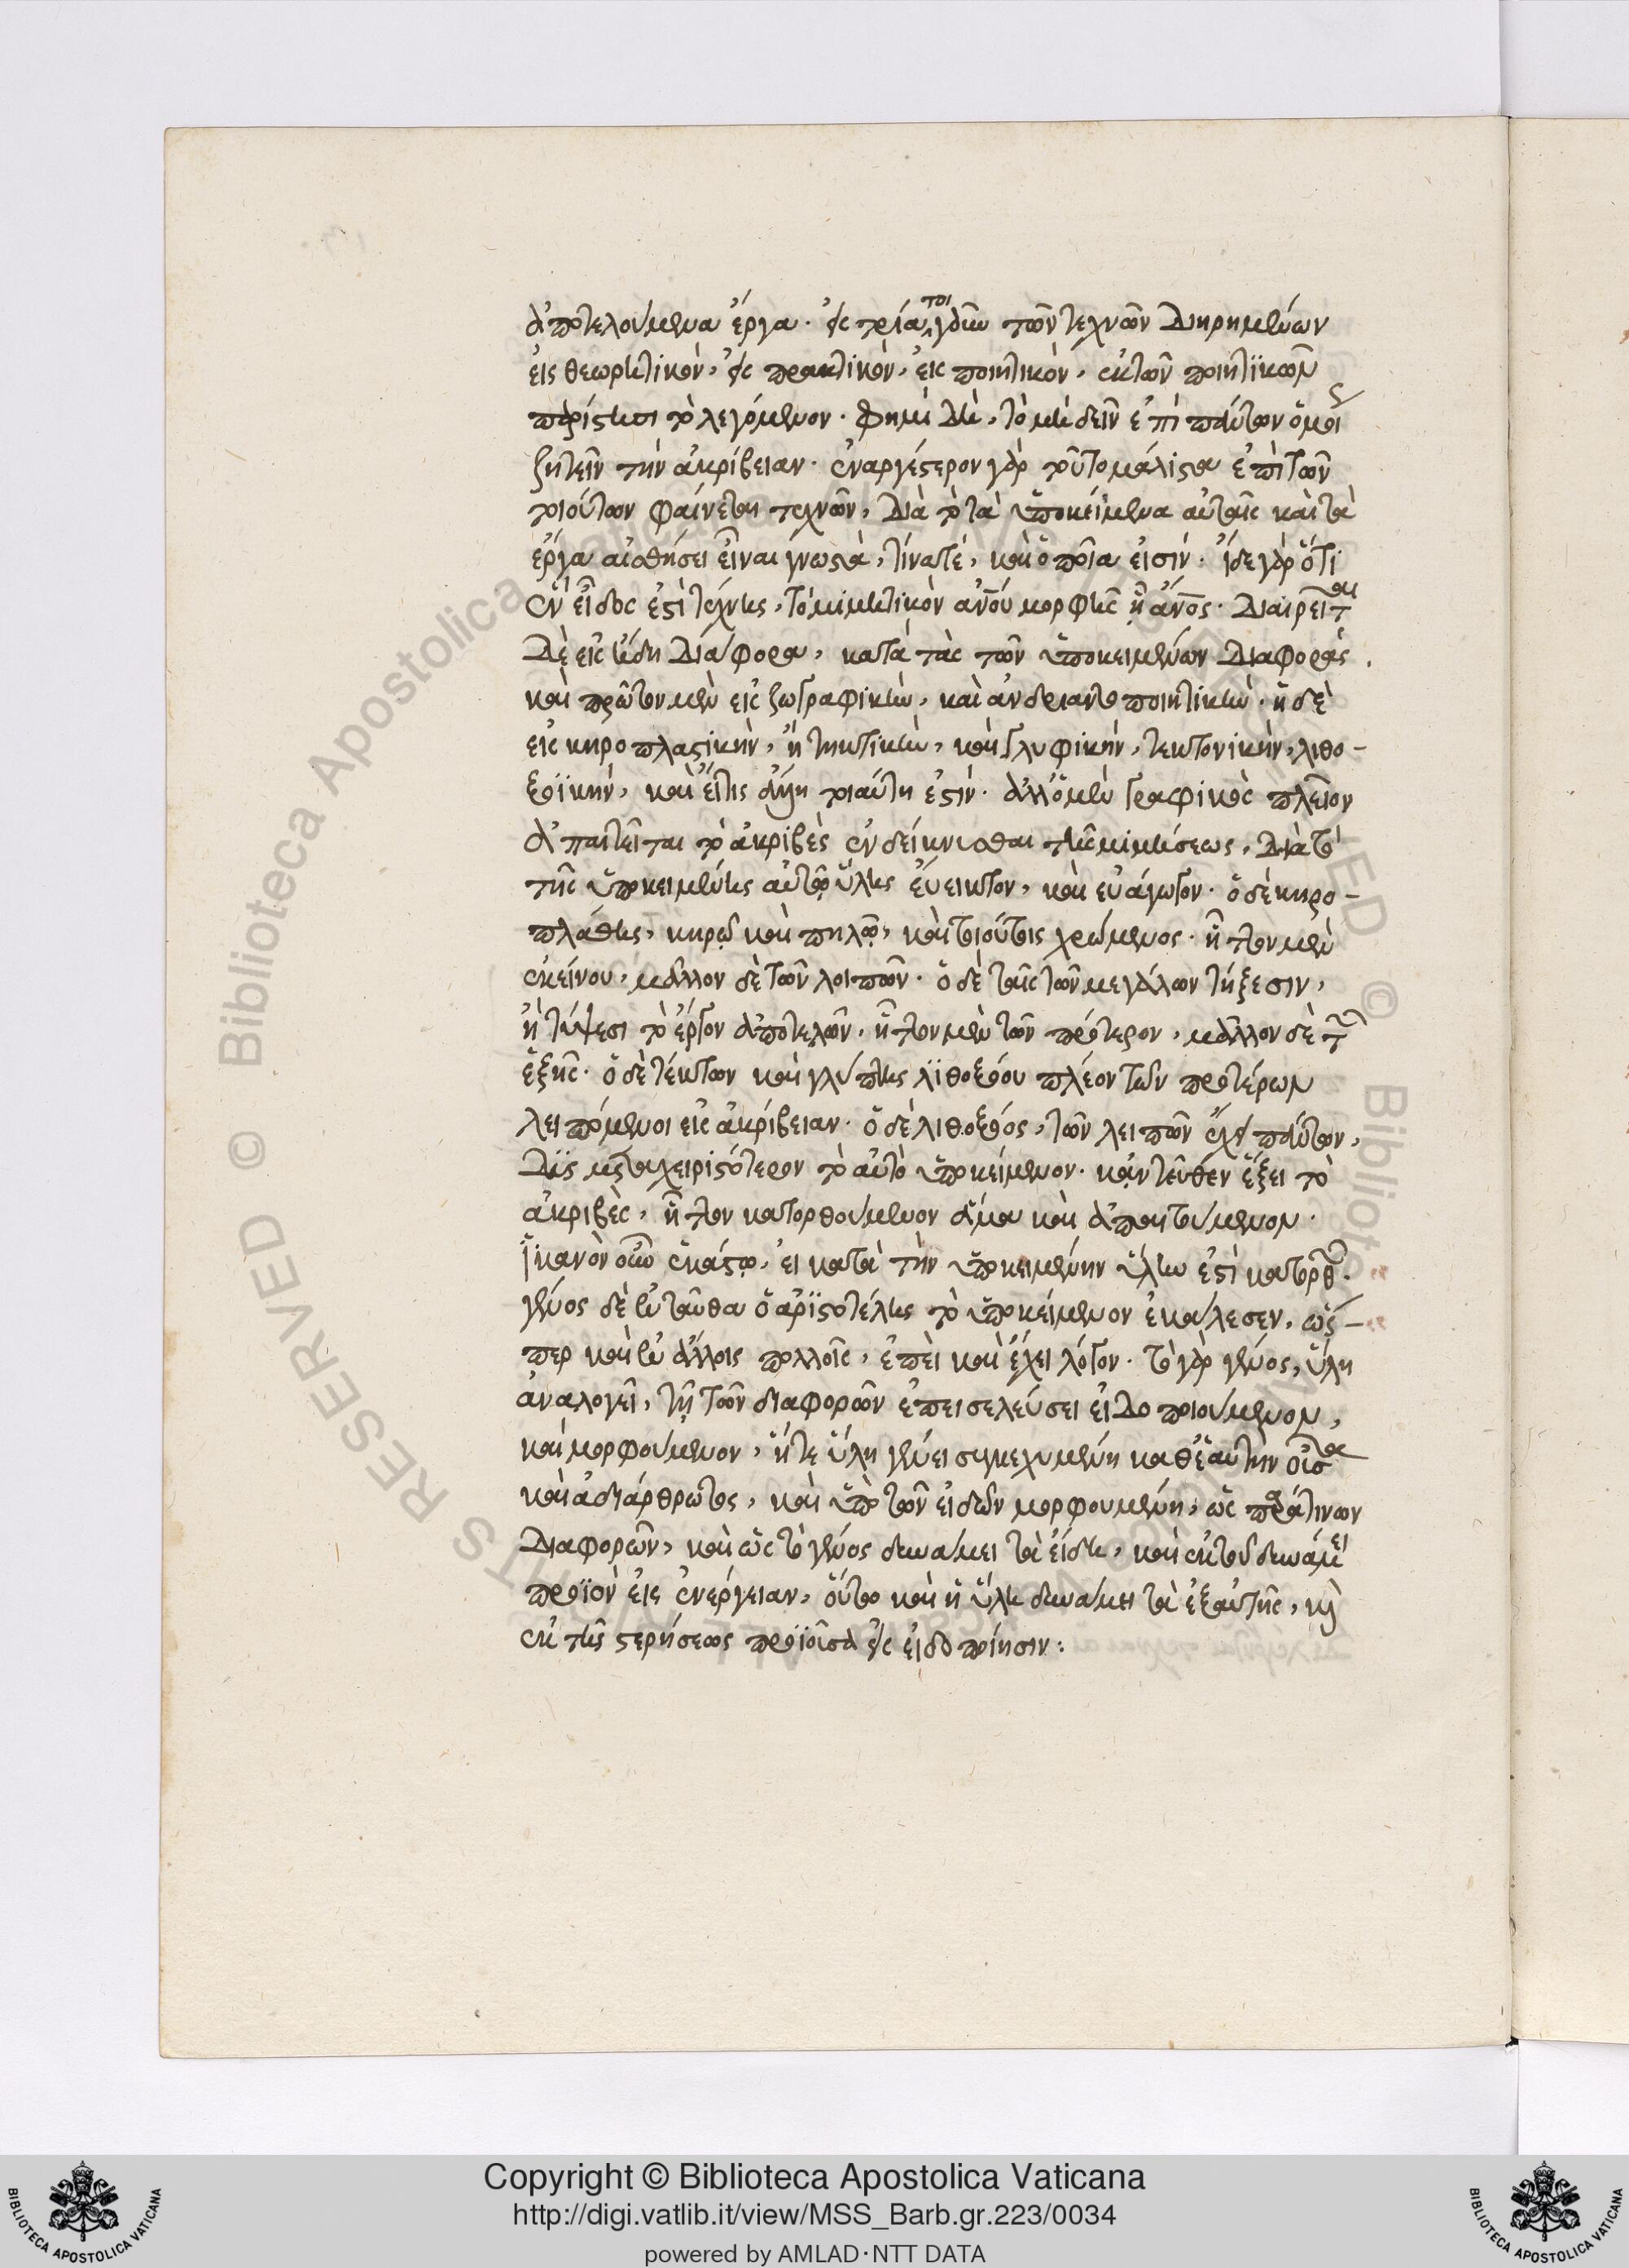 ἀποτελούμενα ἔργα. εἰς τρία τοιγαροῦν τῶν τεχνῶν διῃρημένων
εἰς θεωρητικὸν, εἰς πρακτικὸν, εἰς ποιητικὸν, ἐκ τῶν ποιητικῶν
παρίστησι τὸ λεγόμενον. φημὶ δὴ, τὸ μὴ δεῖν ἐπὶ πάντων ὁμοίως
ζητεῖν τὴν ἀκρίβειαν. ἐναργέστερον γὰρ τοῦτο μάλιστα ἐπὶ τῶν
τοιούτων φαίνεται τεχνῶν, διὰ τὸ τὰ ὑποκείμενα αὐταῖς καὶ τὰ
ἔργα αἰσθήσει εἶναι γνωστὰ, τίνα τέ, καὶ ὁποῖα εἰσίν. ἰδὲ γὰρ ὅτι
ἓν εἶδος ἐστὶ τέχνης, τὸ μιμητικὸν ἀνου μορφῆς ᾗ ἄνος. διαιρεῖται
δὲ εἰς εἴδη διάφορα, κατὰ τὰς τῶν ὑποκειμένων διαφοράς.
καὶ πρῶτον μὲν εἰς ζωγραφικὴν, καὶ ἀνδριαντοποιητικὴν. ἡ δὲ
εἰς κηροπλαστικὴν, ἢ τηκτικὴν, καὶ γλυφικήν, τεκτονικὴν, λιθο-
ξοϊκὴν, καὶ εἴ τις ἄλλη τοιαύτη ἐστίν. ἀλλ' ὁ μὲν γραφικὸς πλεῖον
ἀπαιτεῖται τὸ ἀκριβὲς ἐνδείκνυσθαι τῆς μιμήσεως, διὰ τὸ
τῆς ὑποκειμένης αὐτῷ ὕλης εὔεικτον, καὶ εὐάγωγον. ὁ δὲ κηρο-
πλάστης, κηρῷ καὶ πηλῷ, καὶ τοιούτοις χρώμενος. ἧττον μὲν
ἐκείνου, μᾶλλον δὲ τῶν λοιπῶν. ὁ δὲ ταῖς τῶν μεγάλων τήξεσιν,
ἢ τύψεσι τὸ ἔργον ἀποτελῶν, ἧττον μὲν τῶν πρότερον, μᾶλλον δὲ τῶν
ἑξῆς. ὁ δὲ τέκτων καὶ γλύπτης λιθοξόου πλέον τῶν προτέρων
λειπόμενοι εἰς ἀκρίβειαν. ὁ δὲ λιθοξόος, τῶν λειπῶν ἔχει πάντων,
δὶς μεταχειριστότερον τὸ αὐτὸ ὑποκείμενον. κἀντεῦθεν ἕξει τὸ
ἀκριβὲς, ἧττον κατορθούμενον ἅμα καὶ ἀπαιτούμενον.
ἱκανὸν οὖν ἑκάστῳ, εἰ κατὰ τὴν ὑποκειμένην ὕλην ἐστὶ κατορθῶν.
γένος δὲ ἐνταῦθα ὁ ἀριστοτέλης τὸ ὑποκείμενον ἐκάλεσεν, ὥς-
περ καὶ ἐν ἄλλοις πολλοῖς, ἐπεὶ καὶ ἔχει λόγον. τὸ γὰρ γένος, ὕλη
ἀναλογεῖ, τῇ τῶν διαφορῶν ἐπεισελεύσει εἰδοποιούμενον,
καὶ μορφούμενον, ἥ τε ὕλη γένει συγκεχυμένη καθ' ἑαυτὴν οὖσα
καὶ ἀδιάρθρωτος, καὶ ὑπὸ τῶν εἰδῶν μορφουμένη, ὡς παρά τινων
διαφορῶν, καὶ ὡς τὸ γένος δυνάμει τὰ εἴδη, καὶ ἐκ τοῦ δυνάμει
προϊὸν εἰς ἐνέργειαν, οὕτω καὶ ἡ ὕλη δυνάμει τὰ ἐξ αὐτῆς, καὶ
ἐκ τῆς στερήσεως προϊοῦσα εἰς εἰδοποίησιν:
Copyright © Biblioteca Apostolica Vaticana
http://digi.vatlib.it/view/MSS_Barb.gr.223/0034
powered by AMLAD·NTT DATA